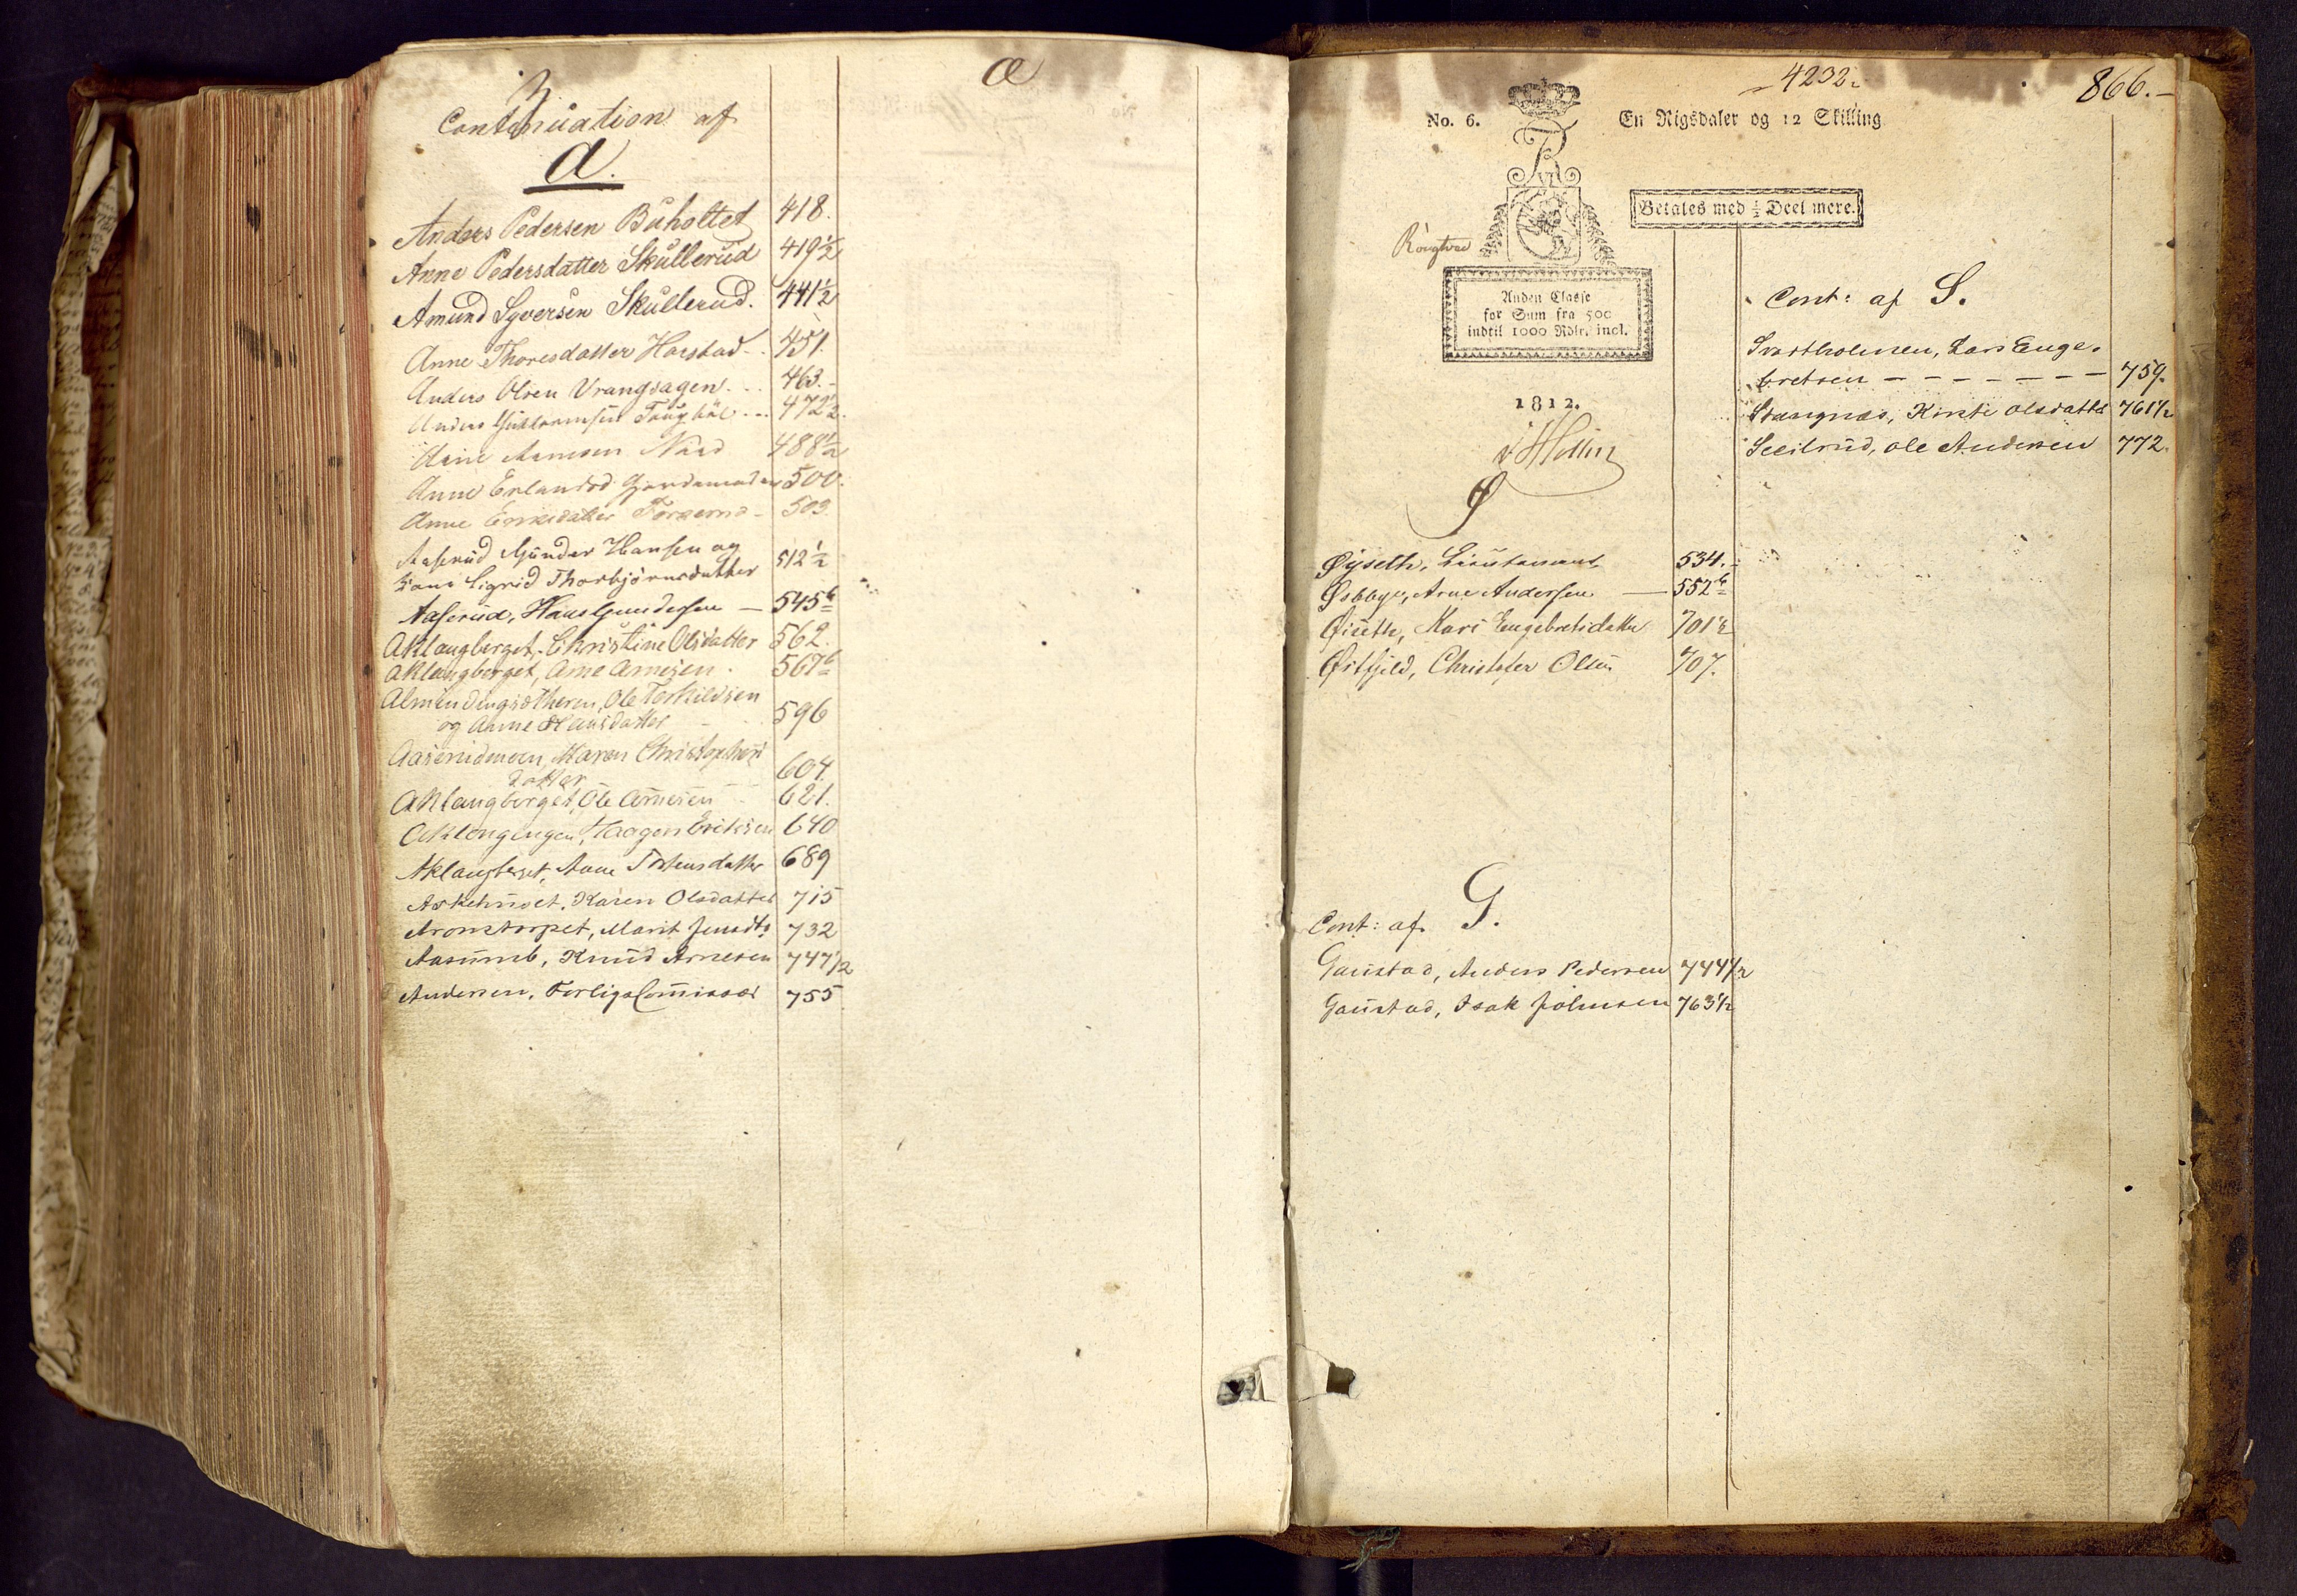 Continuation af
A.
Anders Pedersen Buholtet 418.
Anne Pedersdatter Skullerud 419½
Amund Syversen Skullerud. 441½
Anne Thoresdatter Harstad - 451.
Anders Olsen Vrangsagen. - 463.-
Anders Guttormsen 472½.
Arne Arnesen Naad 488½
Anne Erlandsd 500.
Anne Ericksdatter 503.
Aaserud Gunder Hansen og
Kone Sigrid Thorbjörnsdatter 512½
Aaserud, Hans Gundersen — 545b
Aklangberget, Christine Olsdatter 562.
Aklangberget, Arne Arnesen. 567b
Almindingsætheren, Ole Torkildsen
og Anne Hansdatter 596
Aaserudmoen, Maren Christophers
datter 604.
Aklangberget, Ole Arnesen 621.
Aklangengen, Haagen Eriksen 640
Aklangberget, Anne Tostensdatter 689
Askehuset, Karen Olsdatter 715
Aronstorpet, Marit Jensdtr 732
Aasumb, Knud Arnesen 747½
Andersen, Forligs Commissær 755
Æ
4232.
866.-
No. 6.
En Rigsdaler og 12 Skilling
Betales med ½ Deel mere.
FR VI
Anden Classe
for Sum fra 500
indtil 1000 Rdlr. incl.
1812.
Ø
Øyseth, Lieutenant 534.-
Øsbbye, Arne Andersen — 552b
Øiseth, Kari Engebretsdatter 701½
Østfjeld, Christofer Olsen 707.
Cont: af G.
Gaustad, Anders Pedersen 744½
Gaustad, Isak Johnsen 763½
Cont: af S.
Svartholmen, Lars Enge-
bretsen - - - - - - - 759.
Stangnæs, Kirsti Olsdatter 761½
Ole Andersen 772.